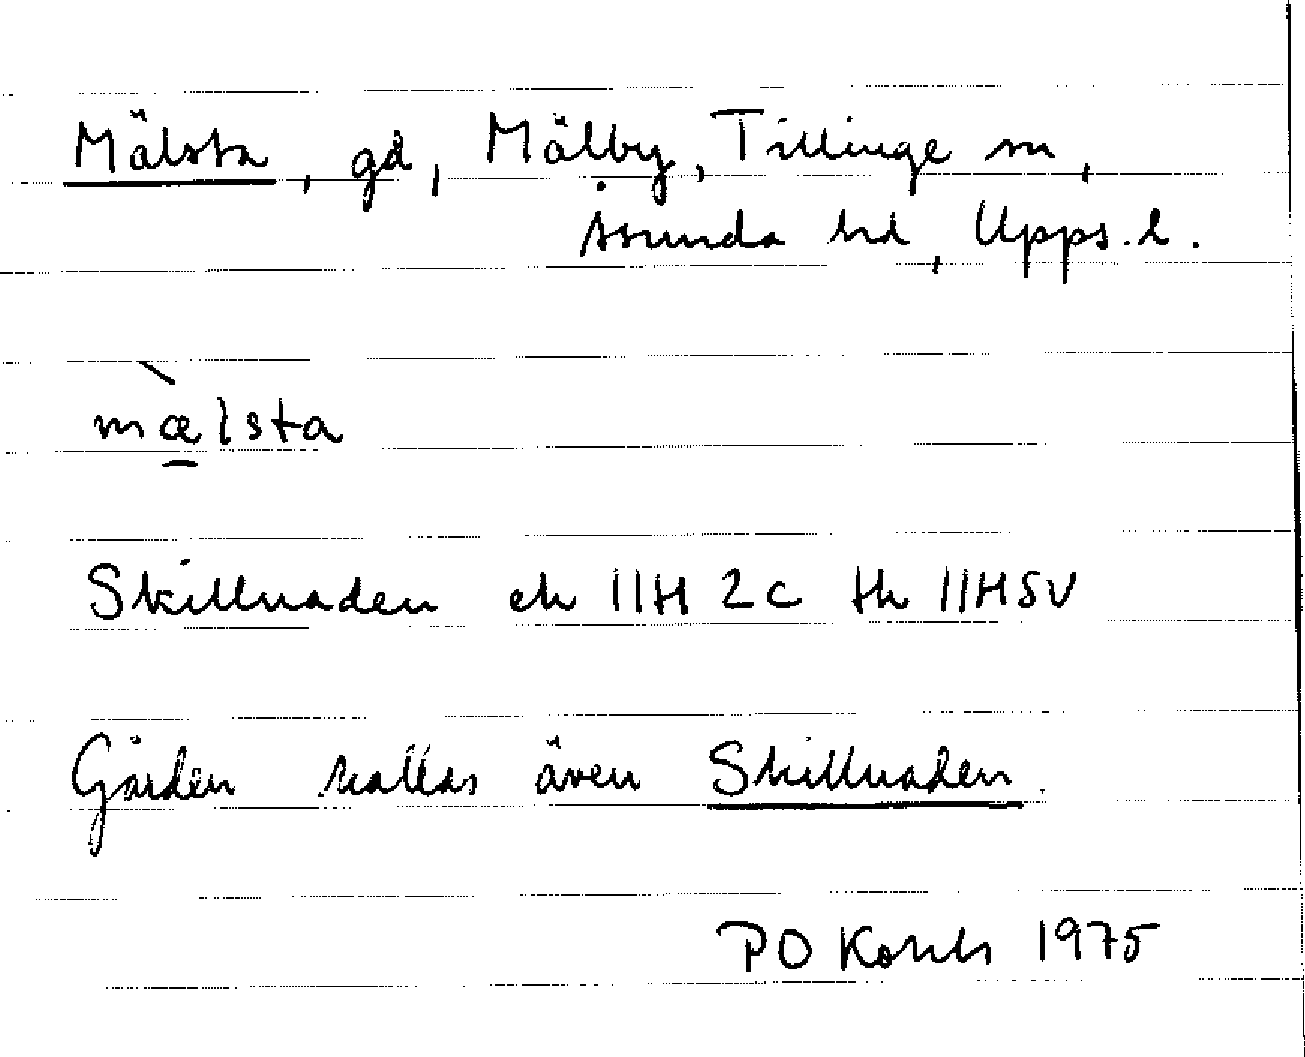 Mälsta, gd, Mälby, Tillinge sn,
Åsunda hd, Upps. l.
mæ̠̀lsta
Skillnaden ek 11H 2c tk 11HSV
Gården kallas även Skillnaden.
PO 1975